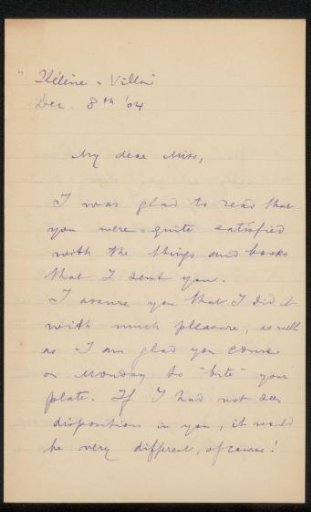 Hélène - Villa
Dec. 8th '04
My dear Miss,
I was glad to read that
you were quite satisfied
with the things and books
that I sent you.
I assure you that I did it
with much pleasure, as well
as I am glad you come
on Monday to "bite" your
plate. If I had not seen
disposition in you, it would
be very different, of course!